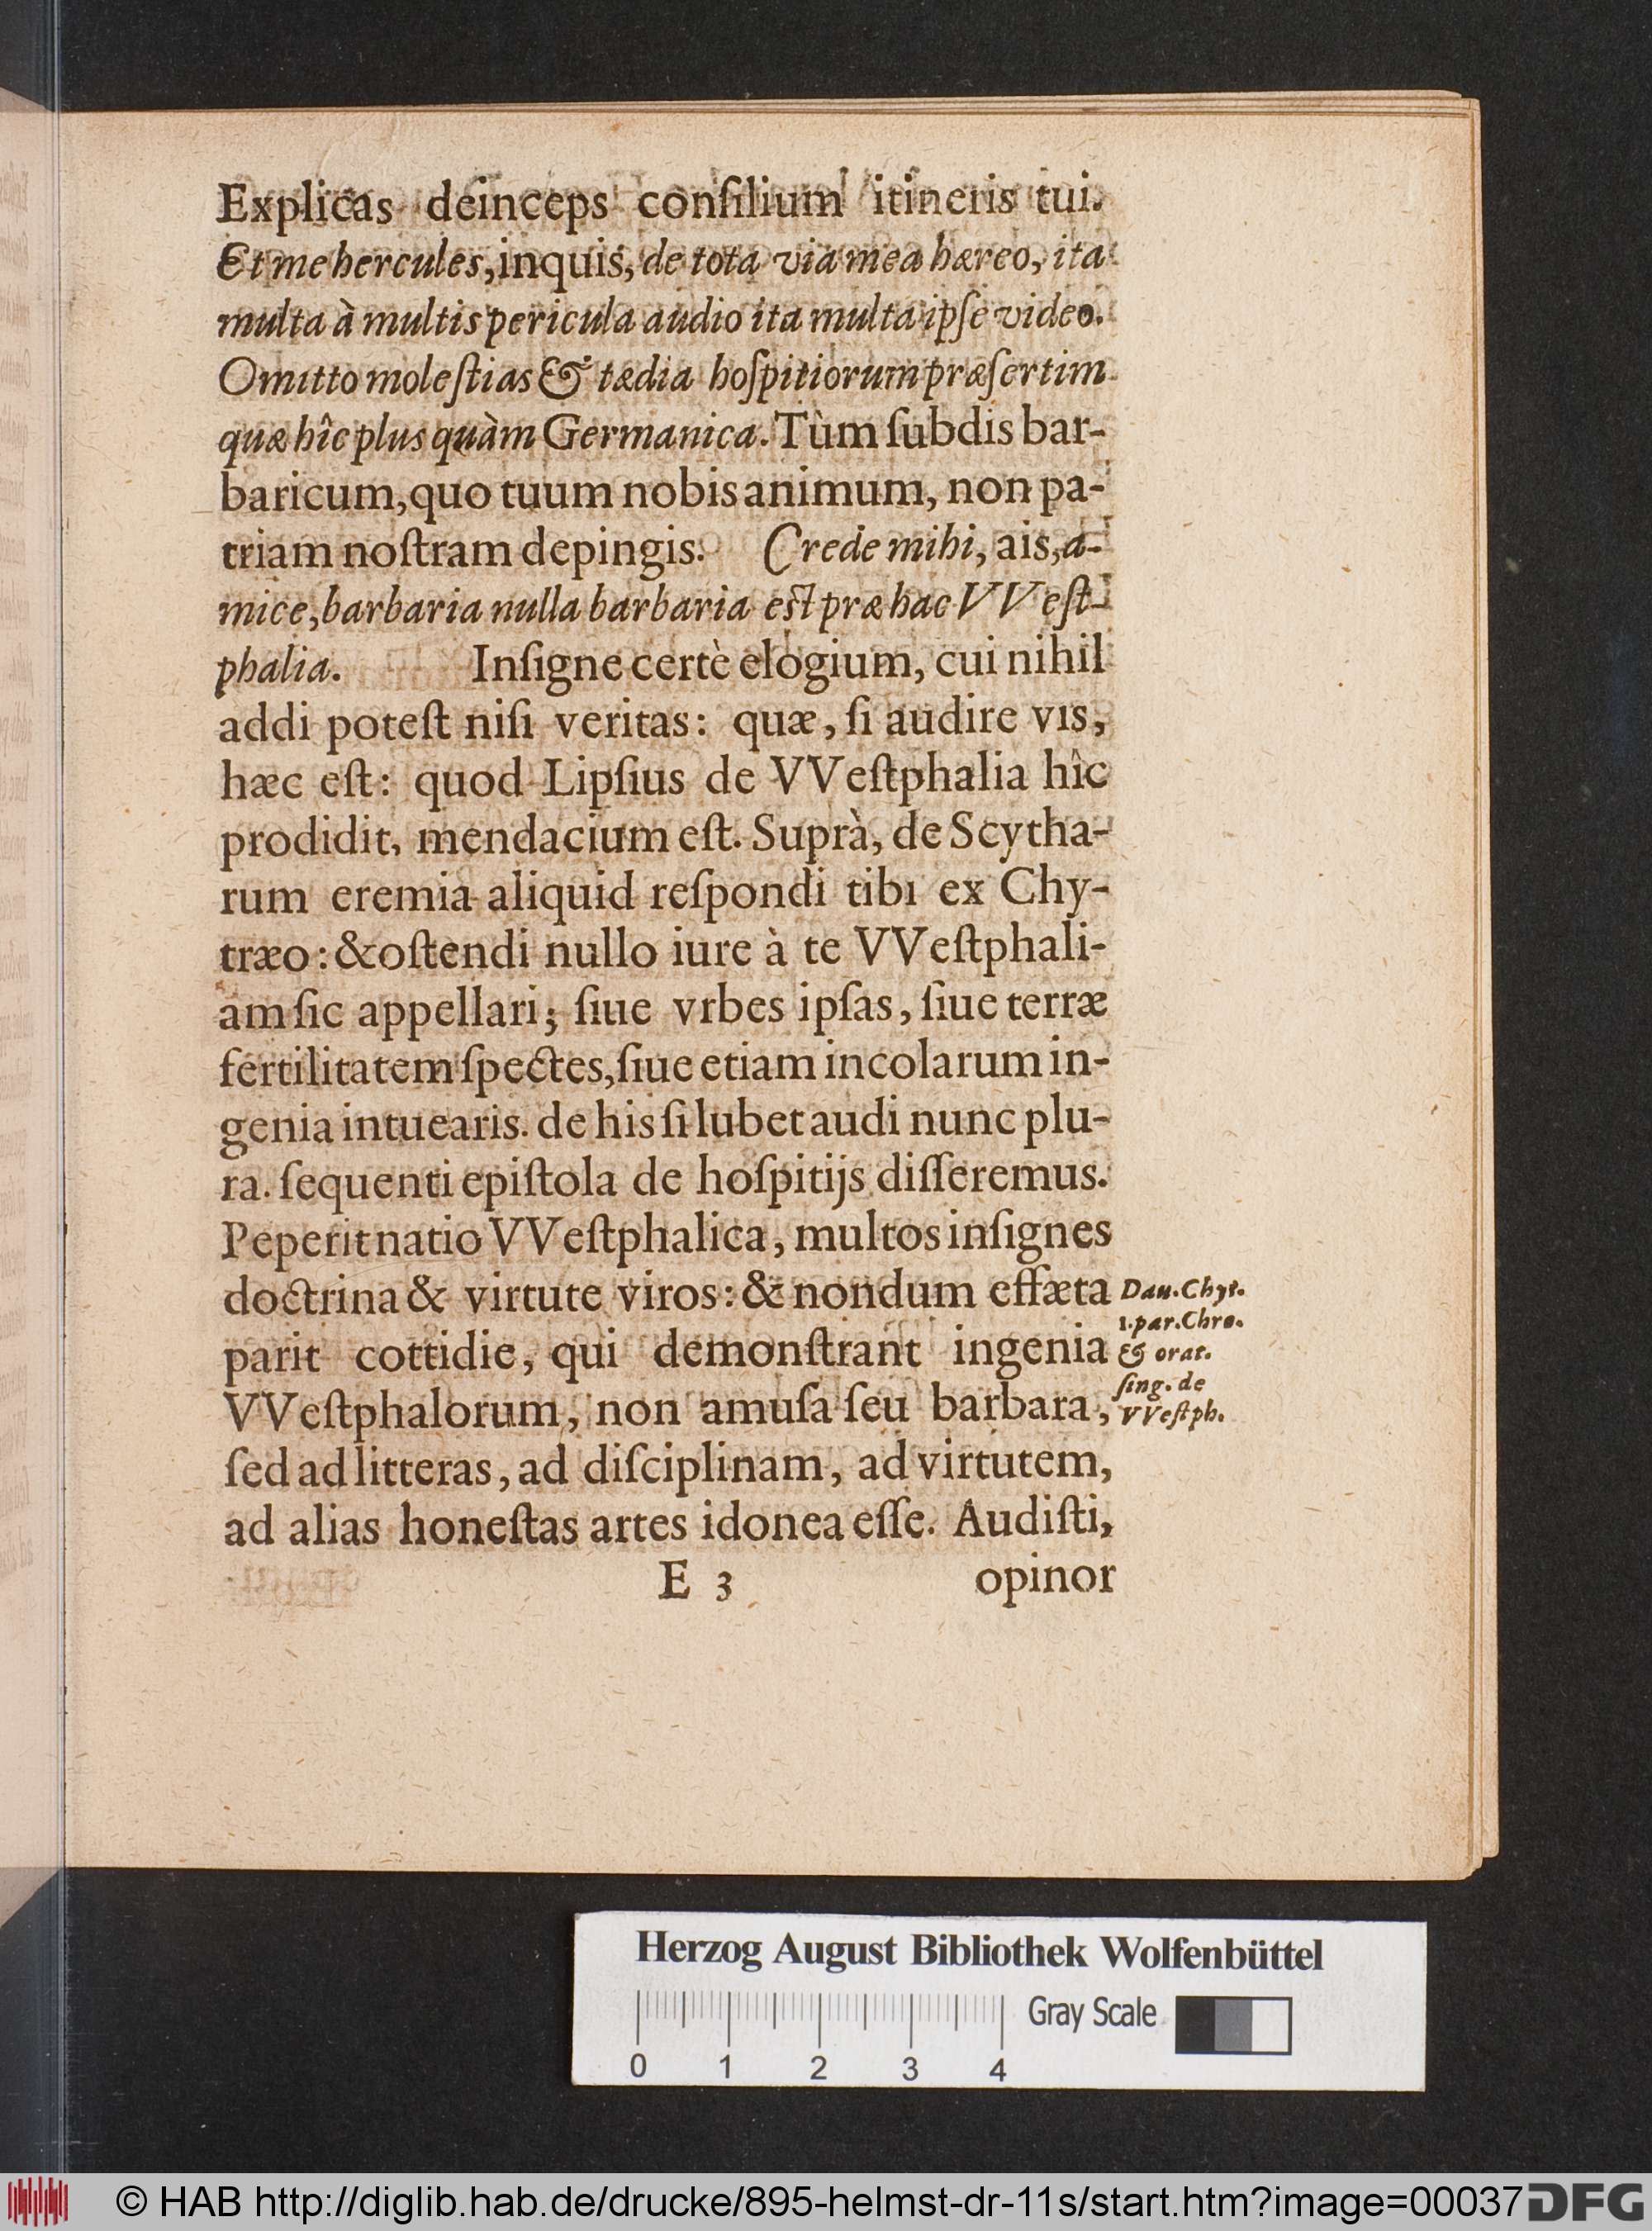 Explicas deinceps conſilium itineris tui.
Et mehercules, inquis, de tota via mea hæreo, ita
multa à multis pericula audio ita multa ipſe video.
Omitto moleſtias & tædia hoſpitiorum præſertim
quæ hîc plus quàm Germanica. Tùm ſubdis bar-
baricum, quo tuum nobis animum, non pa-
triam noſtram depingis. Crede mihi, ais, a-
mice, barbaria nulla barbaria eſt præ hac VVeſt-
phalia. Inſigne certè elogium, cui nihil
addi poteſt niſi veritas: quæ, ſi audire vis,
hæc eſt: quod Lipſius de VVeſtphalia hîc
prodidit, mendacium eſt. Suprà, de Scytha-
rum eremia aliquid reſpondi tibi ex Chy-
træo: & oſtendi nullo iure à te VVeſtphali-
am ſic appellari; ſiue vrbes ipſas, ſiue terræ
fertilitatem ſpectes, ſiue etiam incolarum in-
genia intuearis. de his ſi lubet audi nunc plu-
ra. ſequenti epiſtola de hoſpitijs diſſeremus.
Peperit natio VVeſtphalica, multos inſignes
doctrina & virtute viros: & nondum effæta
parit cottidie, qui demonſtrant ingenia
VVeſtphalorum, non amuſa ſeu barbara,
ſed ad litteras, ad diſciplinam, ad virtutem,
ad alias honeſtas artes idonea eſſe. Audiſti,
E 3 opinor
Dau. Chyt.
1. par. Chro.
& orat.
ſing. de
VVeſtph.
Herzog August Bibliothek Wolfenbüttel
Gray Scale
0 1 2 3 4
© HAB http://diglib.hab.de/drucke/895-helmst-dr-11s/start.htm?image=00037
DFG